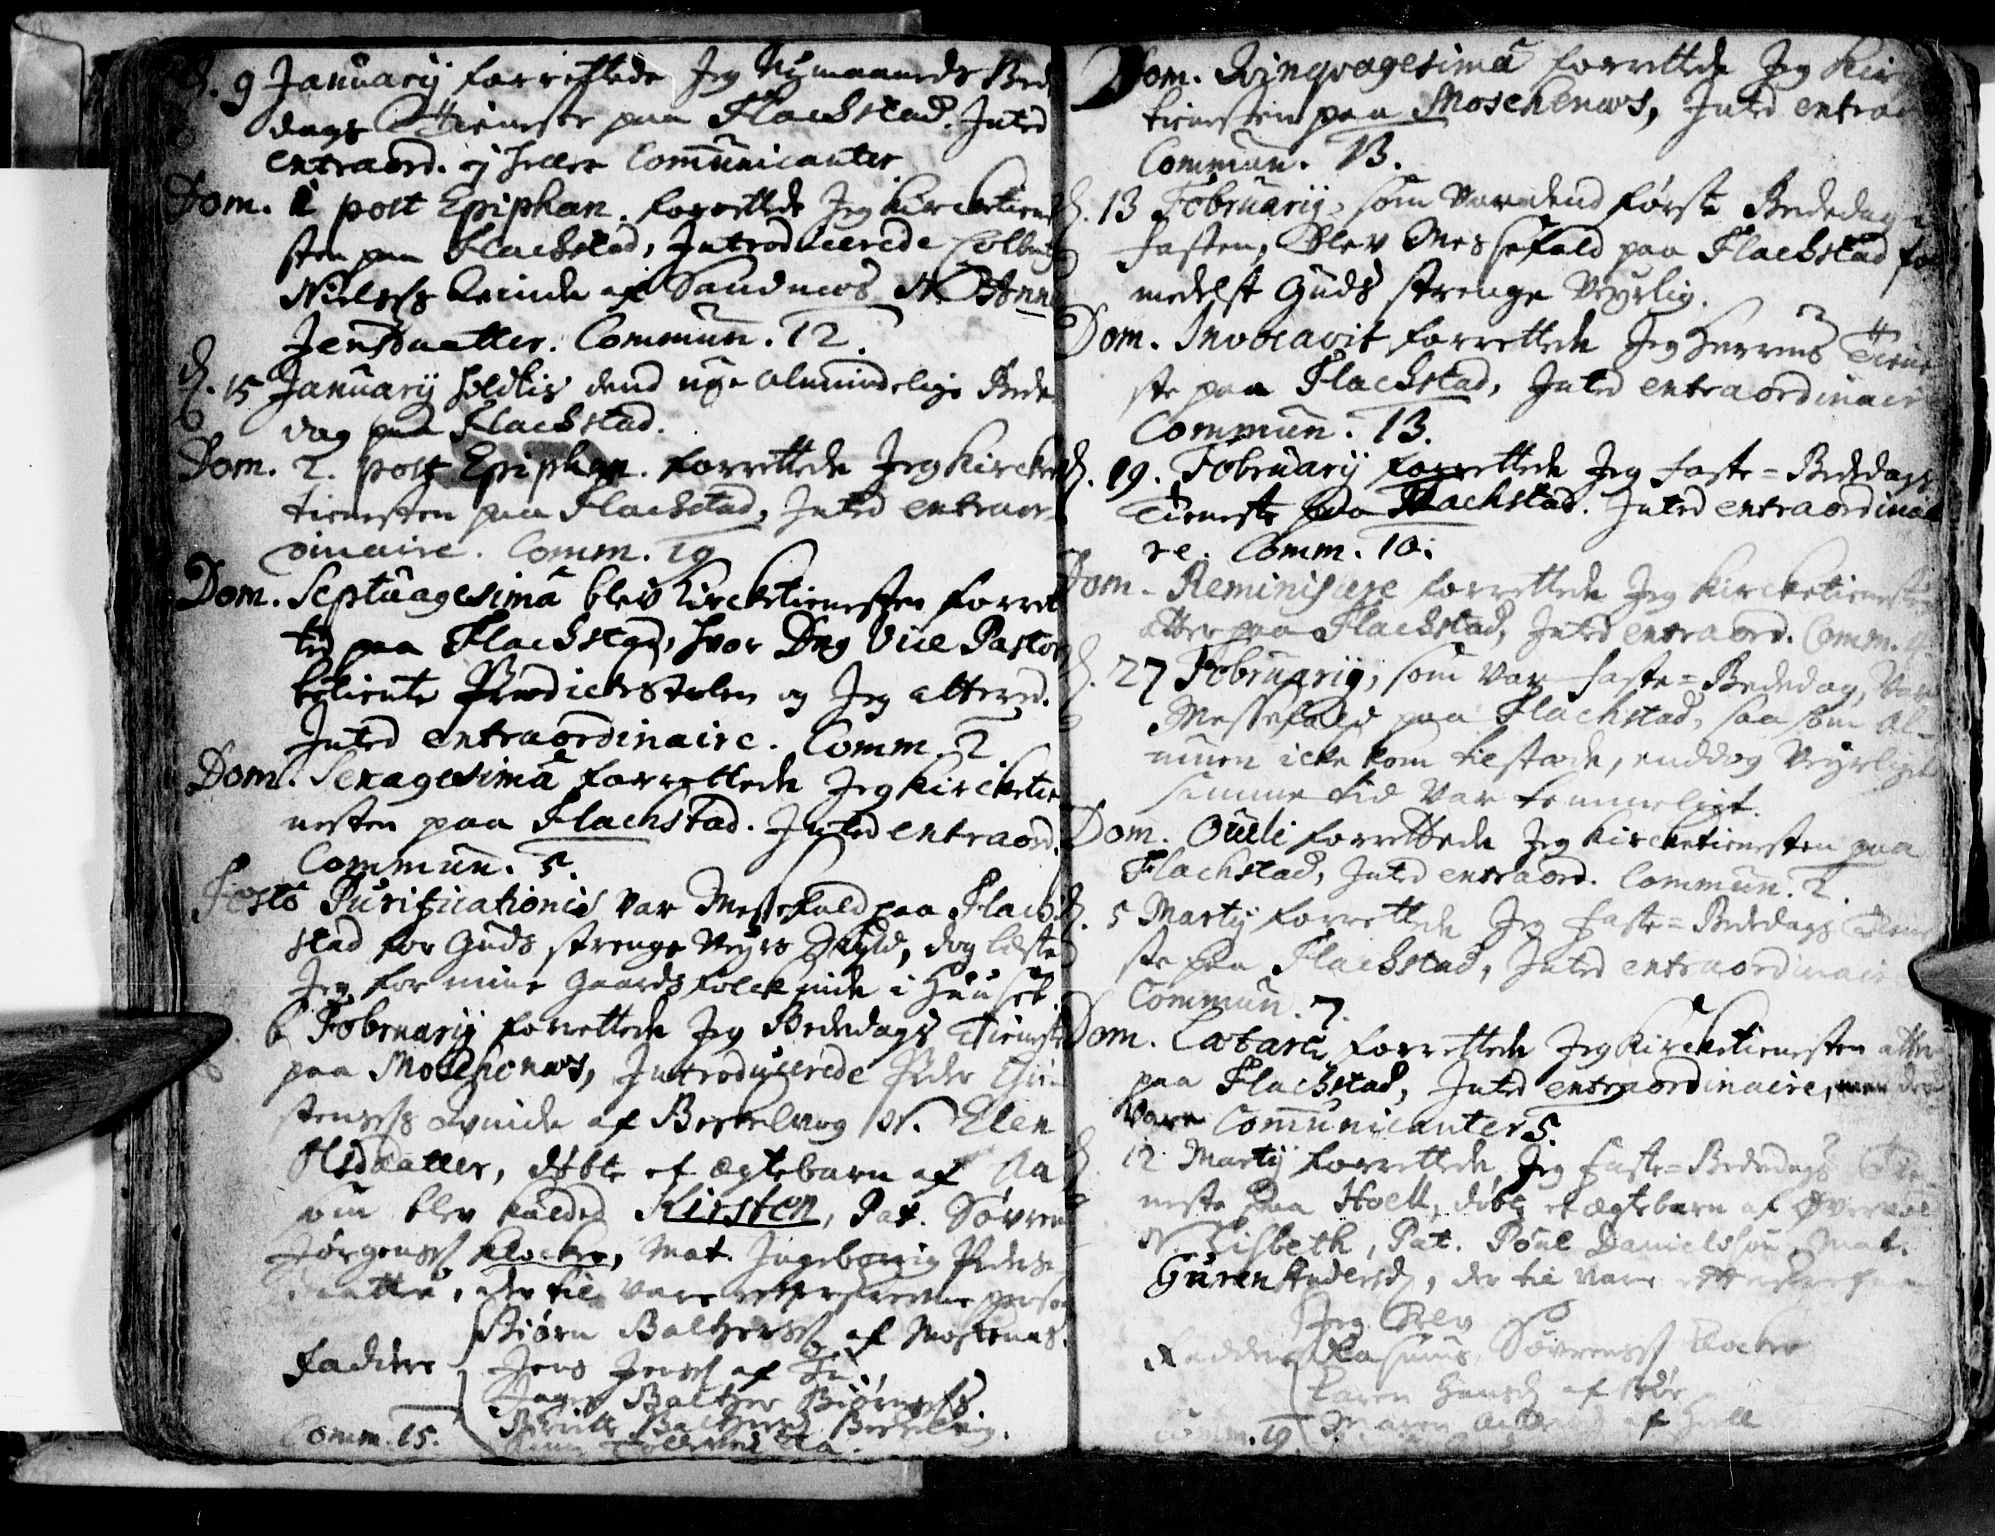 D. 9 Januarij forrettede Jeg Nymaaneds Bede
dags Tieneste paa Flachstad. Inted
extraord. ej heller Communicanter.
Dom. 1 post Epiphan. forrettede Jeg Kircketiene
sten paa Flachstad, Introducerede
Nielsøns Qvinde af Sandnæs N. Anne
Jensdaatter. Commun. 12.
D. 15 Januarij holdtis dend uge almindelige Bede
dag paa Flachstad.
Dom. 2. post Epiphan. forrettede Jeg Kircke
tienesten paa Flachstad, Inted extraor-
dinaire. Comm. 19
Dom. Septuagesima blev Kircketienesten forret
ted paa Flachstad, hvor Dng Vice Pastor
betiente Prædickestolen og Jeg alteret.
Inted extraordinaire. Comm. 2
Dom. Sexagesima forrettede Jeg Kircketie
nesten paa Flachstad. Inted extraord.
Commun. 5.
Festo Purificationis var Messefald paa Flach-
stad for Guds strenge Veyrs skyld, dog læste
Jeg for mine Gaards folck inde i Huuset.
6 Februarij forrettede Jeg Bededags Tieneste
paa Moschenæs, Introducerede Peder
stensøns Qvinde af N. Elen
Olsdaatter, døbte et ægtebarn af Aa
som blev kalded Kirsten, Pat. Søvren
Jørgensøn Klocker, Mat. Ingeborrig Peders
daatter, der til vare efterskrevne person
Biørn Baltzersøn af Mostenæs.
Faddere Jens Jensøn af
Baltzer Biørnsøn
Baltzersd
Comm. 15.
Dom. Qvinqvagesima forrettede Jeg Kir
tienesten paa Moschenæs, Inted extra
Commun. 13.
D. 13 Februarij, som var dend første Bededag i
fasten, blev Messefald paa Flachstad for
medelst Guds strenge Veyrlig.
Dom. Invocavit forrettede Jeg Herrens Tiene
ste paa Flachstad, Inted extraordinair
Commun. 13.
D. 19. Februarij forrettede Jeg faste=Bededags
Tieneste paa Flachstad. Inted extraordinai
re. Comm. 10.
Dom. Reminiscere forrettede Jeg Kircketienesten
atter paa Flachstad, Inted extraord. Comm.
D. 27 Februarij, som var faste=Bededag, var
Messefald paa Flachstad, saasom Al-
muen icke kom tilstæde, enddog Veyrliget
samme tid var temmeligt.
Dom. Oculi forrettede Jeg Kircketienesten paa
Flachstad, Inted extraord. Commun. 2.
D. 5 Martij forrettede Jeg faste=Bededags Tiene
ste paa Flachstad, Inted extraordinair
Commun. 7.
Dom. Lætare forrettede Jeg Kircketienesten atter
paa Flachstad, Inted extraordinaire, men der
vare Communicanter 5.
D. 12 Martij forrettede Jeg faste=Bededags Tie-
neste paa Hoell, døbte et ægtebarn af
N. Lisbeth, Pat. Poul Danielsøn, Mat.
Guren Andersd, der til vare
Jeg Elev
Faddere Rasmus Søvrensøn Klocker
Karen Hansd af
Maren af Hoell
Comm. 19